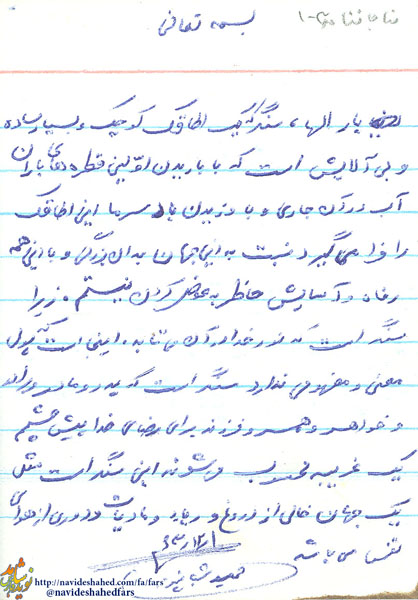 مناجاتنامه ۲-۱
بسمه تعالی
بار الها، سنگر یک اطاقک کوچک و بسیار ساده
و بی آلایش است که با باریدن اولین قطره‌های باران
آب در آن جاری و با وزیدن باد سرما این اطاقک
را فرا می‌گیرد نسبت به این جهان بدان بزرگی و با این همه
رفاه و آسایش حاظر به عوض کردن نیستم. زیرا
سنگر است که نور خدا در آن می‌تابد. اینجا است که پول
معنی و مفهومی ندارد سنگر است که پدر و مادر و برادر
و خواهر و همسر و فرزند برای رضای خدا پیش چشم
یک غریبه محسوب می‌شوند این سنگر است مثل
یک جهان خالی از دروغ و ریا و مادیات و دوری از هوای
نفس می‌باشد
حمید
نوید شاهد
http://navideshahed.com/fa/fars
@navideshahedfars